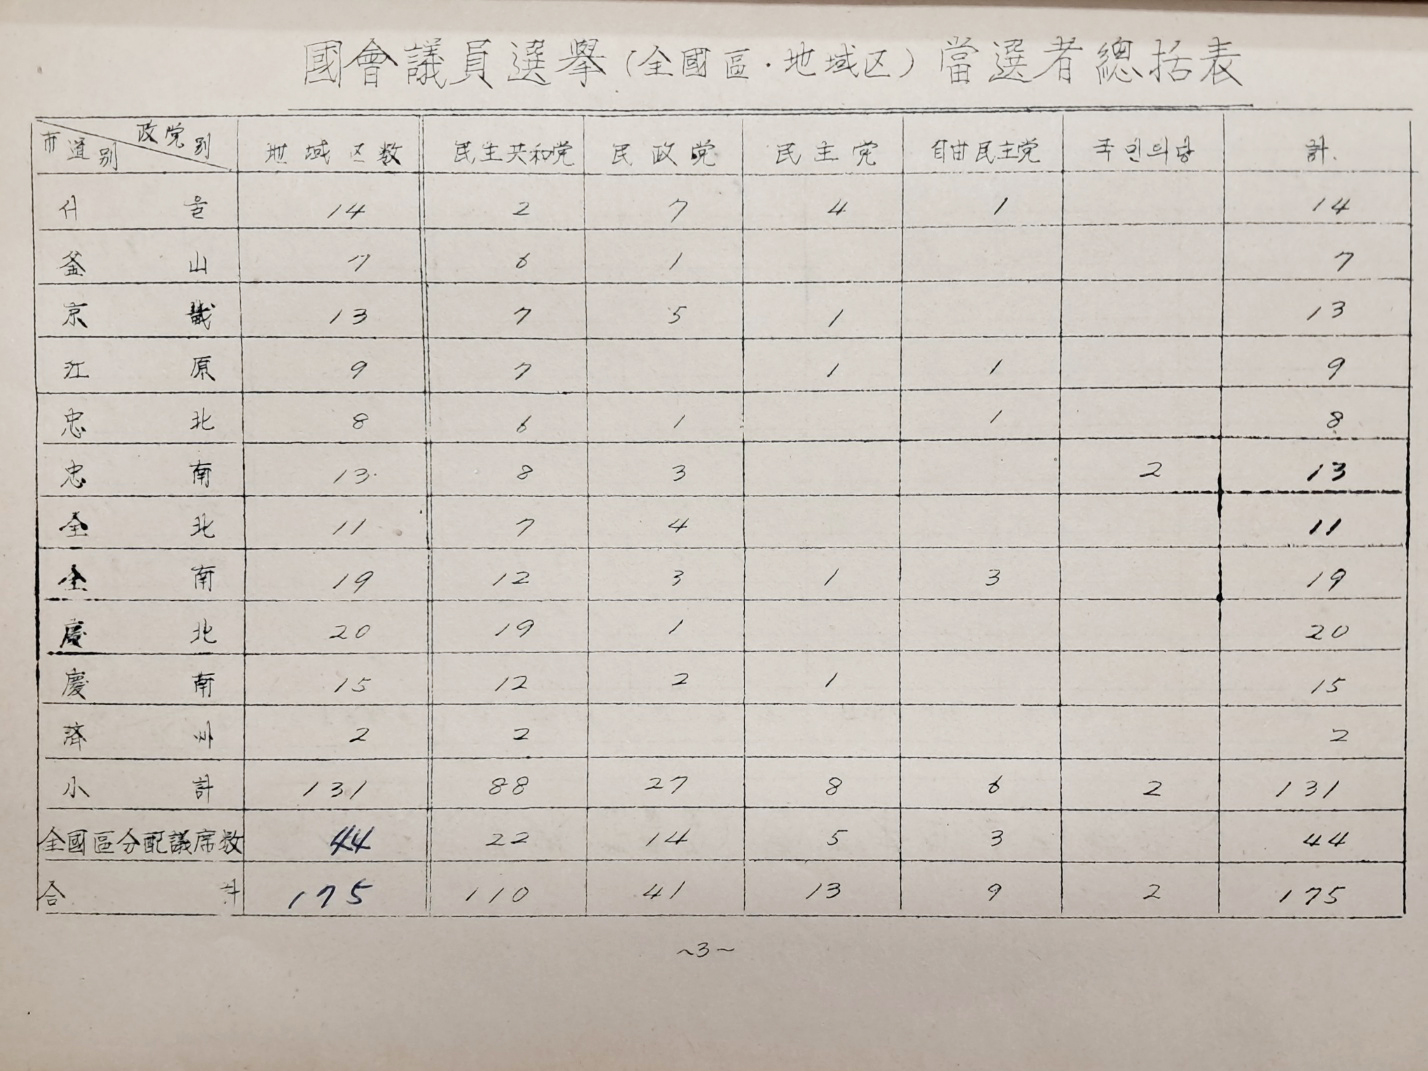 國會議員選擧(全國區·地域区)當選者總括表
市道別 政党別 地域区数 民主共和党 民政党 民主党 自由民主党 국민의당 計.
서울 14 2 7 4 1 14
釜山 7 6 1 7
京畿 13 7 5 1 13
江原 9 7 1 1 9
忠北 8 6 1 1 8
忠南 13 8 3 2 13
全北 11 7 4 11
全南 19 12 3 1 3 19
慶北 20 19 1 20
慶南 15 12 2 1 15
濟州 2 2 2
小計 131 88 27 8 6 2 131
全國區分配議席数 44 22 14 5 3 44
合計 175 110 41 13 9 2 175
~3~